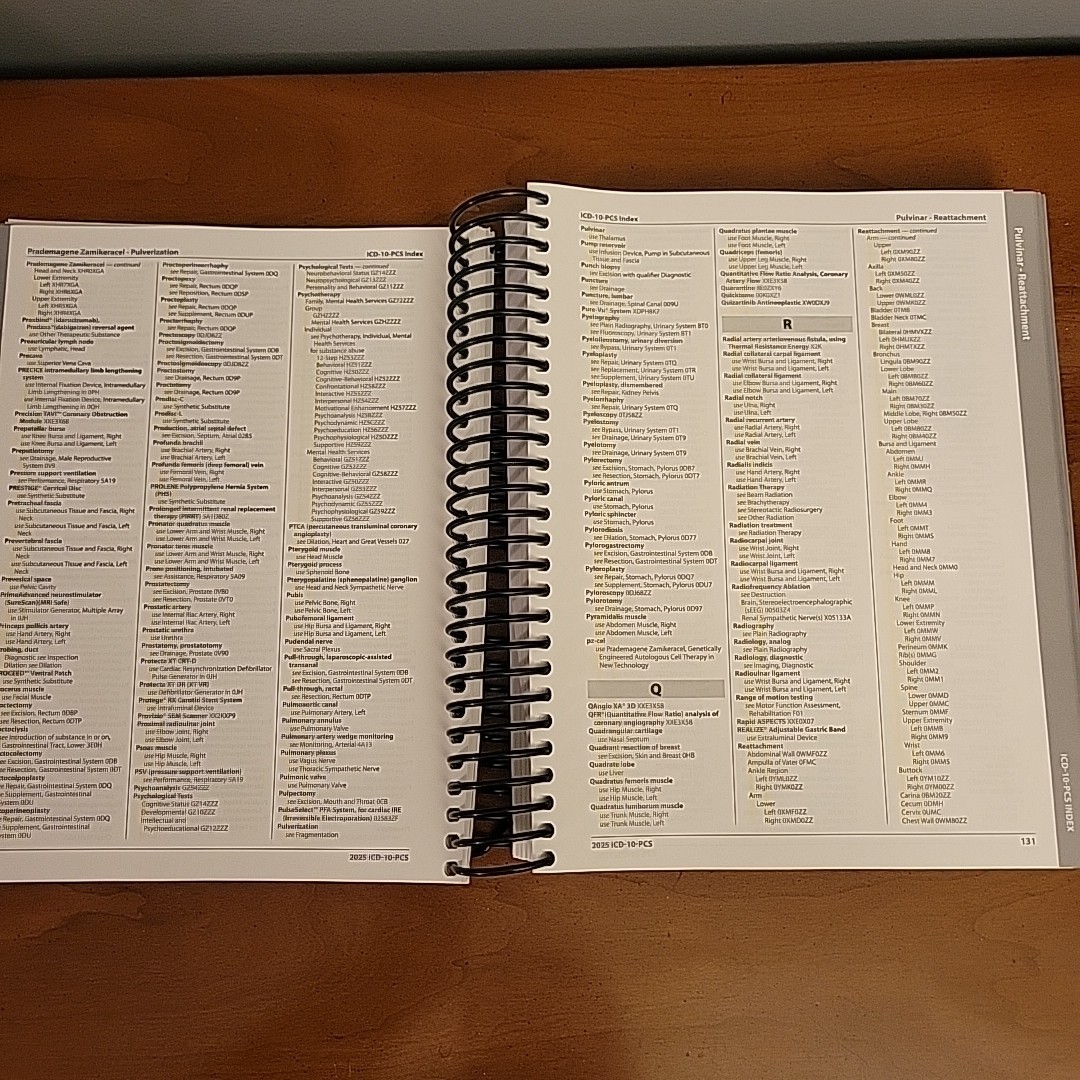 Prademagene Zamikeracel - Pulverization
ICD-10-PCS Index
Prademagene Zamikeracel — continued
Head and Neck XHR0XGA
Lower Extremity
Left XHR7XGA
Right XHR6XGA
Upper Extremity
Left XHR5XGA
Right XHR4XGA
Praxbind® (idarucizumab),
Pradaxa® (dabigatran) reversal agent
use Other Therapeutic Substance
Preauricular lymph node
use Lymphatic, Head
Precava
use Superior Vena Cava
PRECICE intramedullary limb lengthening
system
use Internal Fixation Device, Intramedullary
Limb Lengthening in 0PH
use Internal Fixation Device, Intramedullary
Limb Lengthening in 0QH
Precision TAVI™ Coronary Obstruction
Module XXE3X68
Prepatellar bursa
use Knee Bursa and Ligament, Right
use Knee Bursa and Ligament, Left
Preputiotomy
see Drainage, Male Reproductive
System 0V9
Pressure support ventilation
see Performance, Respiratory 5A19
PRESTIGE® Cervical Disc
use Synthetic Substitute
Pretracheal fascia
use Subcutaneous Tissue and Fascia, Right
Neck
use Subcutaneous Tissue and Fascia, Left
Neck
Prevertebral fascia
use Subcutaneous Tissue and Fascia, Right
Neck
use Subcutaneous Tissue and Fascia, Left
Neck
Prevesical space
use Pelvic Cavity
PrimeAdvanced neurostimulator
(SureScan)(MRI Safe)
use Stimulator Generator, Multiple Array
in 0JH
Princeps pollicis artery
use Hand Artery, Right
use Hand Artery, Left
robing, duct
Diagnostic see Inspection
Dilation see Dilation
ROCEED™ Ventral Patch
use Synthetic Substitute
rocerus muscle
use Facial Muscle
octectomy
ee Excision, Rectum 0DBP
ee Resection, Rectum 0DTP
octoclysis
ee Introduction of substance in or on,
Gastrointestinal Tract, Lower 3E0H
octocolectomy
ee Excision, Gastrointestinal System 0DB
ee Resection, Gastrointestinal System 0DT
octocolpoplasty
e Repair, Gastrointestinal System 0DQ
e Supplement, Gastrointestinal
System 0DU
octoperineoplasty
e Repair, Gastrointestinal System 0DQ
Supplement, Gastrointestinal
stem 0DU
Proctoperineorrhaphy
see Repair, Gastrointestinal System 0DQ
Proctopexy
see Repair, Rectum 0DQP
see Reposition, Rectum 0DSP
Proctoplasty
see Repair, Rectum 0DQP
see Supplement, Rectum 0DUP
Proctorrhaphy
see Repair, Rectum 0DQP
Proctoscopy 0DJD8ZZ
Proctosigmoidectomy
see Excision, Gastrointestinal System 0DB
see Resection, Gastrointestinal System 0DT
Proctosigmoidoscopy 0DJD8ZZ
Proctostomy
see Drainage, Rectum 0D9P
Proctotomy
see Drainage, Rectum 0D9P
Prodisc-C
use Synthetic Substitute
Prodisc-L
use Synthetic Substitute
Production, atrial septal defect
see Excision, Septum, Atrial 02B5
Profunda brachii
use Brachial Artery, Right
use Brachial Artery, Left
Profunda femoris (deep femoral) vein
use Femoral Vein, Right
use Femoral Vein, Left
PROLENE Polypropylene Hernia System
(PHS)
use Synthetic Substitute
Prolonged intermittent renal replacement
therapy (PIRRT) 5A1D80Z
Pronator quadratus muscle
use Lower Arm and Wrist Muscle, Right
use Lower Arm and Wrist Muscle, Left
Pronator teres muscle
use Lower Arm and Wrist Muscle, Right
use Lower Arm and Wrist Muscle, Left
Prone positioning, intubated
see Assistance, Respiratory 5A09
Prostatectomy
see Excision, Prostate 0VB0
see Resection, Prostate 0VT0
Prostatic artery
use Internal Iliac Artery, Right
use Internal Iliac Artery, Left
Prostatic urethra
use Urethra
Prostatomy, prostatotomy
see Drainage, Prostate 0V90
Protecta XT CRT-D
use Cardiac Resynchronization Defibrillator
Pulse Generator in 0JH
Protecta XT DR (XT VR)
use Defibrillator Generator in 0JH
Protege® RX Carotid Stent System
use Intraluminal Device
Provizio® SEM Scanner XX2KXP9
Proximal radioulnar joint
use Elbow Joint, Right
use Elbow Joint, Left
Psoas muscle
use Hip Muscle, Right
use Hip Muscle, Left
PSV (pressure support ventilation)
see Performance, Respiratory 5A19
Psychoanalysis GZ54ZZZ
Psychological Tests
Cognitive Status GZ14ZZZ
Developmental GZ10ZZZ
Intellectual and
Psychoeducational GZ12ZZZ
Psychological Tests — continued
Neurobehavioral Status GZ14ZZZ
Neuropsychological GZ13ZZZ
Personality and Behavioral GZ11ZZZ
Psychotherapy
Family, Mental Health Services GZ72ZZZ
Group
GZHZZZZ
Mental Health Services GZHZZZZ
Individual
see Psychotherapy, Individual, Mental
Health Services
for substance abuse
12-Step HZ53ZZZ
Behavioral HZ51ZZZ
Cognitive HZ50ZZZ
Cognitive-Behavioral HZ52ZZZ
Confrontational HZ58ZZZ
Interactive HZ55ZZZ
Interpersonal HZ54ZZZ
Motivational Enhancement HZ57ZZZ
Psychoanalysis HZ5BZZZ
Psychodynamic HZ5CZZZ
Psychoeducation HZ56ZZZ
Psychophysiological HZ5DZZZ
Supportive HZ59ZZZ
Mental Health Services
Behavioral GZ51ZZZ
Cognitive GZ52ZZZ
Cognitive-Behavioral GZ58ZZZ
Interactive GZ50ZZZ
Interpersonal GZ53ZZZ
Psychoanalysis GZ54ZZZ
Psychodynamic GZ55ZZZ
Psychophysiological GZ59ZZZ
Supportive GZ56ZZZ
PTCA (percutaneous transluminal coronary
angioplasty)
see Dilation, Heart and Great Vessels 027
Pterygoid muscle
use Head Muscle
Pterygoid process
use Sphenoid Bone
Pterygopalatine (sphenopalatine) ganglion
use Head and Neck Sympathetic Nerve
Pubis
use Pelvic Bone, Right
use Pelvic Bone, Left
Pubofemoral ligament
use Hip Bursa and Ligament, Right
use Hip Bursa and Ligament, Left
Pudendal nerve
use Sacral Plexus
Pull-through, laparoscopic-assisted
transanal
see Excision, Gastrointestinal System 0DB
see Resection, Gastrointestinal System 0DT
Pull-through, rectal
see Resection, Rectum 0DTP
Pulmoaortic canal
use Pulmonary Artery, Left
Pulmonary annulus
use Pulmonary Valve
Pulmonary artery wedge monitoring
see Monitoring, Arterial 4A13
Pulmonary plexus
use Vagus Nerve
use Thoracic Sympathetic Nerve
Pulmonic valve
use Pulmonary Valve
Pulpectomy
see Excision, Mouth and Throat 0CB
PulseSelect™ PFA System, for cardiac IRE
(Irreversible Electroporation) 02583ZF
Pulverization
see Fragmentation
2025 ICD-10-PCS
ICD-10-PCS Index
Pulvinar - Reattachment
Pulvinar
use Thalamus
Pump reservoir
use Infusion Device, Pump in Subcutaneous
Tissue and Fascia
Punch biopsy
see Excision with qualifier Diagnostic
Puncture
see Drainage
Puncture, lumbar
see Drainage, Spinal Canal 009U
Pure-Vu® System XDPH8K7
Pyelography
see Plain Radiography, Urinary System BT0
see Fluoroscopy, Urinary System BT1
Pyeloileostomy, urinary diversion
see Bypass, Urinary System 0T1
Pyeloplasty
see Repair, Urinary System 0TQ
see Replacement, Urinary System 0TR
see Supplement, Urinary System 0TU
Pyeloplasty, dismembered
see Repair, Kidney Pelvis
Pyelorrhaphy
see Repair, Urinary System 0TQ
Pyeloscopy 0TJ58ZZ
Pyelostomy
see Bypass, Urinary System 0T1
see Drainage, Urinary System 0T9
Pyelotomy
see Drainage, Urinary System 0T9
Pylorectomy
see Excision, Stomach, Pylorus 0DB7
see Resection, Stomach, Pylorus 0DT7
Pyloric antrum
use Stomach, Pylorus
Pyloric canal
use Stomach, Pylorus
Pyloric sphincter
use Stomach, Pylorus
Pylorodiosis
see Dilation, Stomach, Pylorus 0D77
Pylorogastrectomy
see Excision, Gastrointestinal System 0DB
see Resection, Gastrointestinal System 0DT
Pyloroplasty
see Repair, Stomach, Pylorus 0DQ7
see Supplement, Stomach, Pylorus 0DU7
Pyloroscopy 0DJ68ZZ
Pylorotomy
see Drainage, Stomach, Pylorus 0D97
Pyramidalis muscle
use Abdomen Muscle, Right
use Abdomen Muscle, Left
pz-cel
use Prademagene Zamikeracel, Genetically
Engineered Autologous Cell Therapy in
New Technology
Q
QAngio XA® 3D XXE3X58
QFR® (Quantitative Flow Ratio) analysis of
coronary angiography XXE3X58
Quadrangular cartilage
use Nasal Septum
Quadrant resection of breast
see Excision, Skin and Breast 0HB
Quadrate lobe
use Liver
Quadratus femoris muscle
use Hip Muscle, Right
use Hip Muscle, Left
Quadratus lumborum muscle
use Trunk Muscle, Right
use Trunk Muscle, Left
Quadratus plantae muscle
use Foot Muscle, Right
use Foot Muscle, Left
Quadriceps (femoris)
use Upper Leg Muscle, Right
use Upper Leg Muscle, Left
Quantitative Flow Ratio Analysis, Coronary
Artery Flow XXE3X58
Quarantine 8E0ZXY6
Quicktome 00K0XZ1
Quizartinib Antineoplastic XW0DXJ9
R
Radial artery arteriovenous fistula, using
Thermal Resistance Energy X2K
Radial collateral carpal ligament
use Wrist Bursa and Ligament, Right
use Wrist Bursa and Ligament, Left
Radial collateral ligament
use Elbow Bursa and Ligament, Right
use Elbow Bursa and Ligament, Left
Radial notch
use Ulna, Right
use Ulna, Left
Radial recurrent artery
use Radial Artery, Right
use Radial Artery, Left
Radial vein
use Brachial Vein, Right
use Brachial Vein, Left
Radialis indicis
use Hand Artery, Right
use Hand Artery, Left
Radiation Therapy
see Beam Radiation
see Brachytherapy
see Stereotactic Radiosurgery
see Other Radiation
Radiation treatment
see Radiation Therapy
Radiocarpal joint
use Wrist Joint, Right
use Wrist Joint, Left
Radiocarpal ligament
use Wrist Bursa and Ligament, Right
use Wrist Bursa and Ligament, Left
Radiofrequency Ablation
see Destruction
Brain, Stereoelectroencephalographic
(sEEG) 00503Z4
Renal Sympathetic Nerve(s) X05133A
Radiography
see Plain Radiography
Radiology, analog
see Plain Radiography
Radiology, diagnostic
see Imaging, Diagnostic
Radioulnar ligament
use Wrist Bursa and Ligament, Right
use Wrist Bursa and Ligament, Left
Range of motion testing
see Motor Function Assessment,
Rehabilitation F01
Rapid ASPECTS XXE0X07
REALIZE® Adjustable Gastric Band
use Extraluminal Device
Reattachment
Abdominal Wall 0WMF0ZZ
Ampulla of Vater 0FMC
Ankle Region
Left 0YML0ZZ
Right 0YMK0ZZ
Arm
Lower
Left 0XMF0ZZ
Right 0XMD0ZZ
Reattachment — continued
Arm — continued
Upper
Left 0XM90ZZ
Right 0XM80ZZ
Axilla
Left 0XM50ZZ
Right 0XM40ZZ
Back
Lower 0WML0ZZ
Upper 0WMK0ZZ
Bladder 0TMB
Bladder Neck 0TMC
Breast
Bilateral 0HMVXZZ
Left 0HMUXZZ
Right 0HMTXZZ
Bronchus
Lingula 0BM90ZZ
Lower Lobe
Left 0BMB0ZZ
Right 0BM60ZZ
Main
Left 0BM70ZZ
Right 0BM30ZZ
Middle Lobe, Right 0BM50ZZ
Upper Lobe
Left 0BM80ZZ
Right 0BM40ZZ
Bursa and Ligament
Abdomen
Left 0MMJ
Right 0MMH
Ankle
Left 0MMR
Right 0MMQ
Elbow
Left 0MM4
Right 0MM3
Foot
Left 0MMT
Right 0MMS
Hand
Left 0MM8
Right 0MM7
Head and Neck 0MM0
Hip
Left 0MMM
Right 0MML
Knee
Left 0MMP
Right 0MMN
Lower Extremity
Left 0MMW
Right 0MMV
Perineum 0MMK
Rib(s) 0MMG
Shoulder
Left 0MM2
Right 0MM1
Spine
Lower 0MMD
Upper 0MMC
Sternum 0MMF
Upper Extremity
Left 0MMB
Right 0MM9
Wrist
Left 0MM6
Right 0MM5
Buttock
Left 0YM10ZZ
Right 0YM00ZZ
Carina 0BM20ZZ
Cecum 0DMH
Cervix 0UMC
Chest Wall 0WM80ZZ
2025 ICD-10-PCS
131
Pulvinar - Reattachment
ICD-10-PCS INDEX